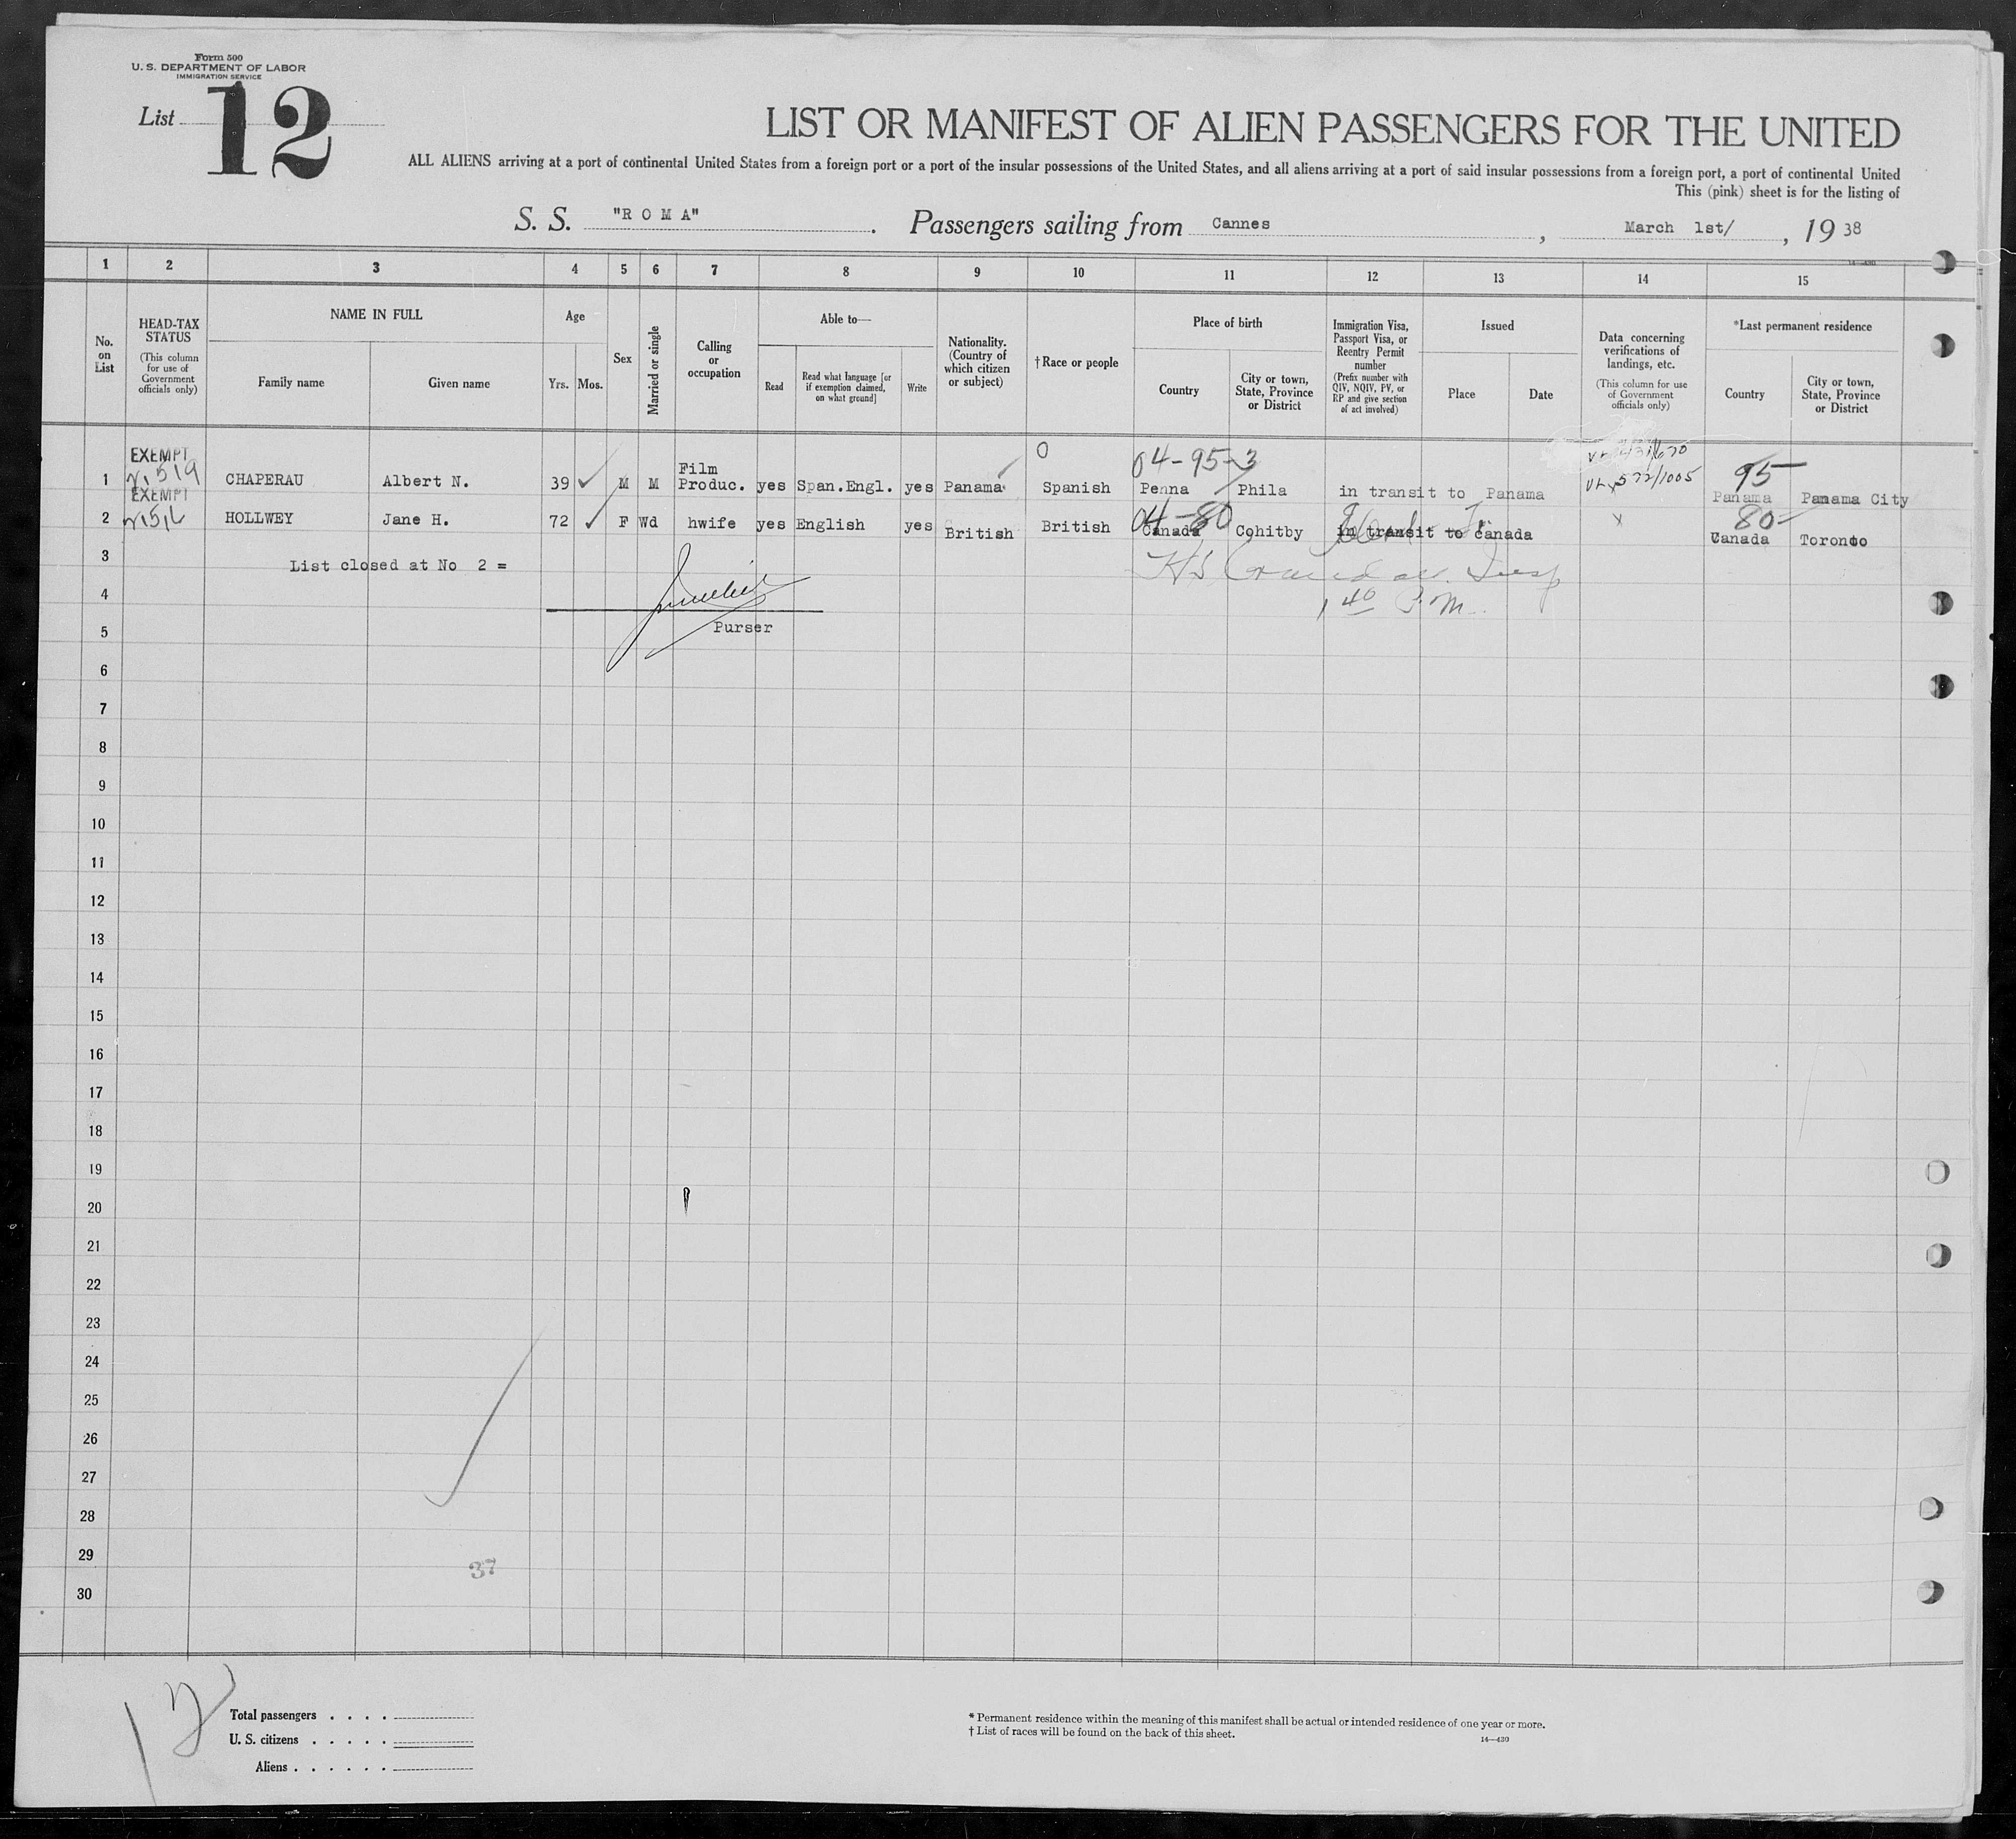 Form 500
U. S. DEPARTMENT OF LABOR
IMMIGRATION SERVICE
List 12
LIST OR MANIFEST OF ALIEN PASSENGERS FOR THE UNITED
ALL ALIENS arriving at a port of continental United States from a foreign port or a port of the insular possessions of the United States, and all aliens arriving at a port of said insular possessions from a foreign port, a port of continental United
This (pink) sheet is for the listing of
S. S. "R O M A" . Passengers sailing from Cannes , March 1st/ , 19 38
14—430
1 2 3 4 5 6 7 8 9 10 11 12 13 14 15
No. on List
HEAD-TAX STATUS
(This column for use of Government officials only)
NAME IN FULL
Family name
Given name
Age
Yrs. Mos.
Sex
Married or single
Calling or occupation
Able to—
Read
Read what language [or if exemption claimed, on what ground]
Write
Nationality. (Country of which citizen or subject)
†Race or people
Place of birth
Country
City or town, State, Province or District
Immigration Visa, Passport Visa, or Reentry Permit number
(Prefix number with QIV, NQIV, PV, or RP and give section of act involved)
Issued
Place
Date
Data concerning verifications of landings, etc.
(This column for use of Government officials only)
*Last permanent residence
Country
City or town, State, Province or District
EXEMPT 0 04-95-3 95
1 CHAPERAU Albert N. 39 M M Film Produc. yes Span.Engl. yes Panama Spanish Penna Phila in transit to Panama 572/1005 Panama Panama City
EXEMPT 04-80 80
2 HOLLWEY Jane H. 72 F Wd hwife yes English yes British British Canada Cohitby in transit to Canada x Canada Toronto
3 List closed at No 2 =
4 1 40 P.M.
5 Purser
6
7
8
9
10
11
12
13
14
15
16
17
18
19
20
21
22
23
24
25
26
27
28
29 37
30
12
Total passengers . . . .
U. S. citizens . . . . .
Aliens . . . . . .
* Permanent residence within the meaning of this manifest shall be actual or intended residence of one year or more.
† List of races will be found on the back of this sheet.
14—430